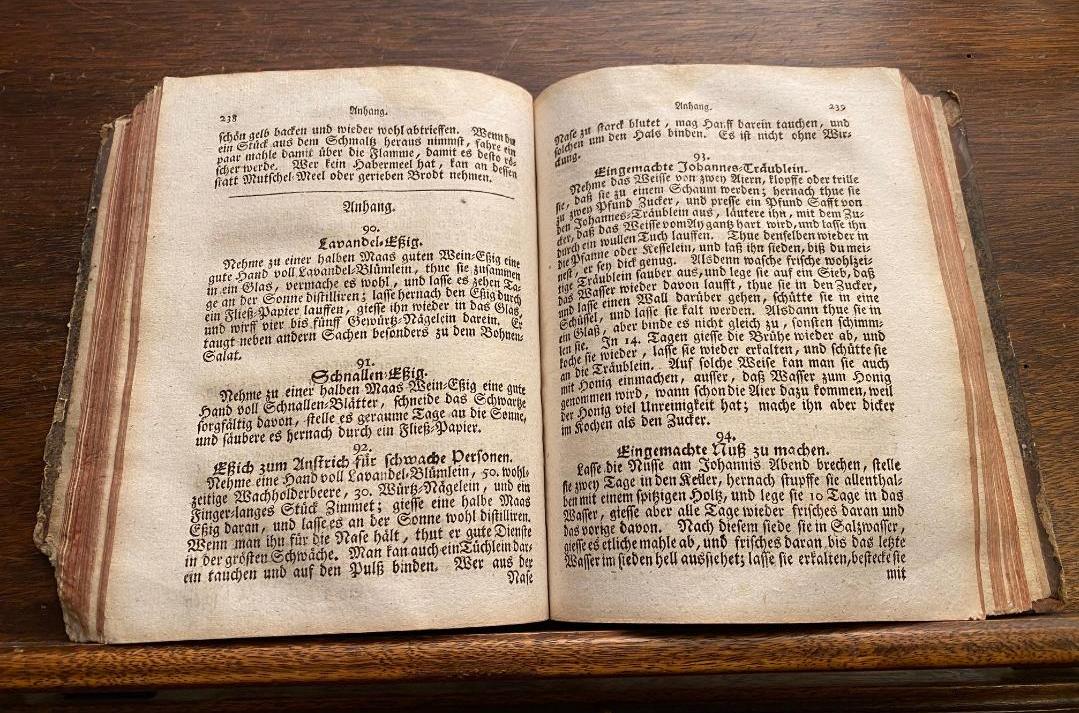 238
Anhang.
schön gelb backen und wieder wohl abtrieffen. Wenn du
ein Stück aus dem Schmaltz heraus nimmst, fahre ein
paar mahle damit über die Flamme, damit es desto rö-
scher werde. Wer kein Habermeel hat, kan an dessen
statt Mutschel-Meel oder gerieben Brodt nehmen.
Anhang.
90.
Lavandel-Eßig.
Nehme zu einer halben Maas guten Wein-Eßig eine
gute Hand voll Lavandel-Blümlein, thue sie zusammen
in ein Glas, vermache es wohl, und lasse es zehen Ta-
ge an der Sonne distilliren; lasse hernach den Eßig durch
ein Fließ-Papier lauffen, giesse ihn wieder in das Glas,
und wirff vier bis fünff Gewürtz-Nägelein darein. Er
taugt neben andern Sachen besonders zu dem Bohnen-
Salat.
91.
Schnallen-Eßig.
Nehme zu einer halben Maas Wein-Eßig eine gute
Hand voll Schnallen-Blätter, schneide das Schwartze
sorgfältig davon, stelle es geraume Tage an die Sonne,
und säubere es hernach durch ein Fließ-Papier.
92.
Eßich zum Anstrich für schwache Personen.
Nehme eine Hand voll Lavandel-Blümlein, 50. wohl-
zeitige Wachholderbeere, 30. Würtz-Nägelein, und ein
Finger-langes Stück Zimmet; giesse eine halbe Maas
Eßig daran, und lasse es an der Sonne wohl distilliren.
Wenn man ihn für die Nase hält, thut er gute Dienste
in der grösten Schwäche. Man kan auch ein Tüchlein dar-
ein tauchen und auf den Pulß binden. Wer aus der
Nase
Anhang.
239
Nase zu starck blutet, mag Hanff darein tauchen, und
solchen um den Hals binden. Es ist nicht ohne Wir-
ckung.
93.
Eingemachte Johannes-Träublein.
Nehme das Weisse von zwey Aiern, klopffe oder trille
sie, daß sie zu einem Schaum werden; hernach thue sie
zu zwey Pfund Zucker, und presse ein Pfund Safft von
den Johannes-Träublein aus, läutere ihn, mit dem Zu-
cker, daß das Weisse vom Ay gantz hart wird, und lasse ihn
durch ein wullen Tuch lauffen. Thue denselben wieder in
die Pfanne oder Kesselein, und laß ihn sieden, biß du mei-
nest, er sey dick genug. Alsdenn wasche frische wohlzei-
tige Träublein sauber aus, und lege sie auf ein Sieb, daß
das Wasser wieder davon laufft, thue sie in den Zucker,
und lasse einen Wall darüber gehen, schütte sie in eine
Schüssel, und lasse sie kalt werden. Alsdann thue sie in
ein Glaß, aber binde es nicht gleich zu, sonsten schimm-
len sie. In 14. Tagen giesse die Brühe wieder ab, und
koche sie wieder, lasse sie wieder erkalten, und schütte sie
an die Träublein. Auf solche Weise kan man sie auch
mit Honig einmachen, ausser, daß Wasser zum Honig
genommen wird, wann schon die Aier dazu kommen, weil
der Honig viel Unreinigkeit hat; mache ihn aber dicker
im Kochen als den Zucker.
94.
Eingemachte Nuß zu machen.
Lasse die Nüsse am Johannis Abend brechen, stelle
sie zwey Tage in den Keller, hernach stupffe sie allenthal-
ben mit einem spitzigen Holtz, und lege sie 10 Tage in das
Wasser, giesse aber alle Tage wieder frisches daran und
das vorige davon. Nach diesem siede sie in Saltzwasser,
giesse es etliche mahle ab, und frisches daran, bis das letzte
Wasser im sieden hell aussiehet; lasse sie erkalten, bestecke sie
mit